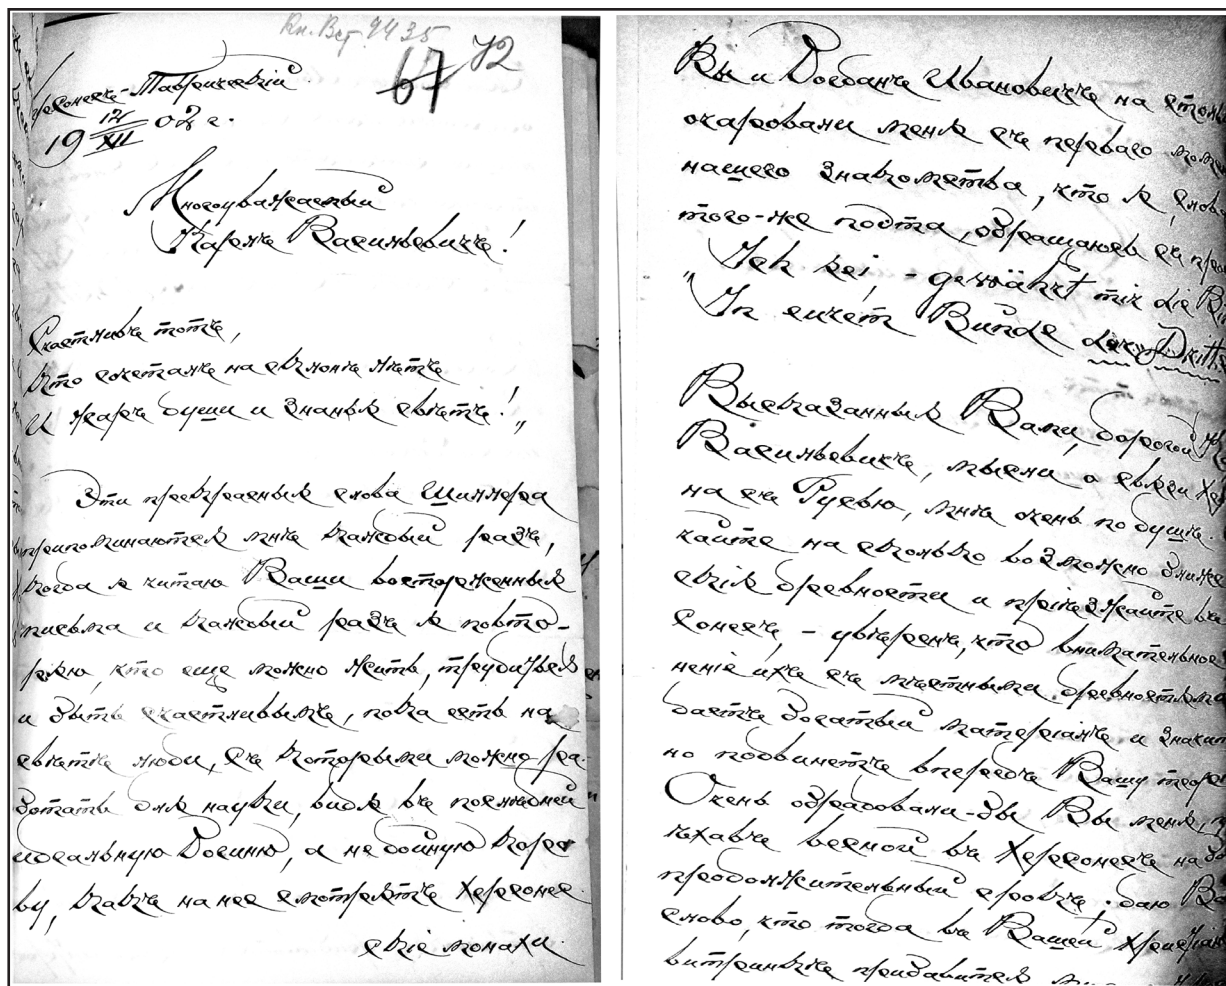 Кн. Вст. 9435
67 72
Херсонесъ-Таврическій
19 12/XII 02 г.
Многоуважаемый
Карлъ Васильевичъ!
Счастливъ тотъ,
Кто сочеталъ на склонѣ лѣтъ
И жаръ души и знанья свѣтъ!„
Эти прекрасныя слова Шиллера
припоминаются мнѣ каждый разъ,
когда я читаю Ваши восторженныя
письма и каждый разъ я повто-
ряю, что еще можно жить, трудиться
и быть счастливымъ, пока есть на
свѣтѣ люди, съ которыми можно ра-
ботать для науки, видя въ последней
идеальную Богиню, а не дойную коро
ву, какъ на нее смотрятъ Херсонес
скіе монахи.
Вы и Богданъ Ивановичъ на столь
очаровали меня съ перваго мом
нашего знакомства, что я, снов
того-же поэта, обращаюсь съ прос
„Ich sei, - gewährt mir die Bit
In eurem Bunde der Dritt
Высказанныя Вами, дорогой Ка
Васильевичъ, мысли о связи Хе
на съ Русью, мнѣ очень по душѣ.
чайте на сколько возможно ближе
скія древности и пріѣзжайте въ
сонесъ, - увѣренъ, что внимательное
неніе ихъ съ мѣстными древностями
дастъ богатый матеріалъ и значит
но подвинетъ впередъ Вашу теор
Очень обрадовали-бы Вы меня, п
ѣхавъ весной въ Херсонесъ на б
продолжительный срокъ: даю Ва
слово, что тогда въ Вашей христіан
витринкѣ прибавится